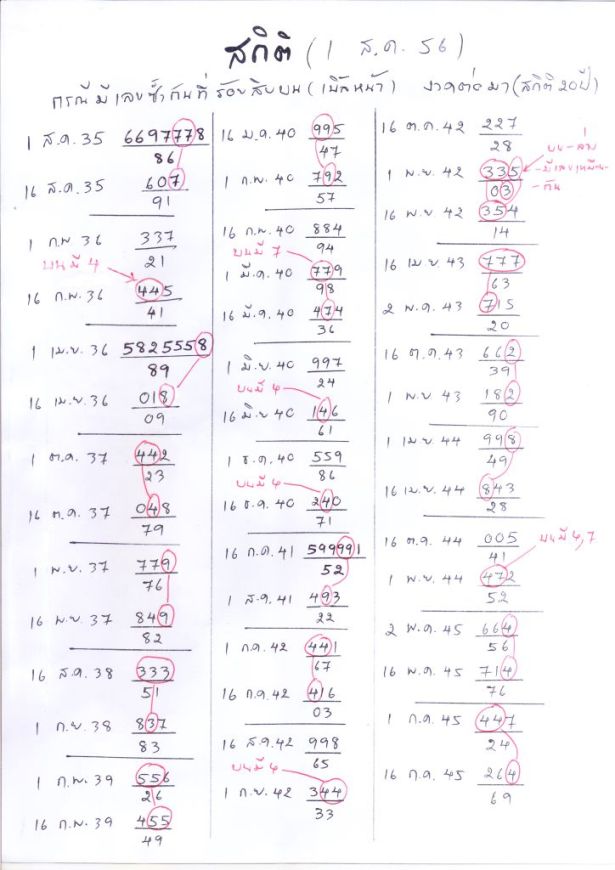 สถิติ (1 ส.ค. 56)
กรณีมีเลขซ้ำกันที่ร้อยสิบบน (เบิ้ลหน้า) งวดต่อมา (สถิติ 20 ปี)
1 ส.ค. 35 6697778
86
16 ส.ค. 35 607
91
1 ก.พ 36 337
21
บนมี 4
16 ก.พ. 36 445
41
1 เม.ย. 36 5825558
89
16 เม.ย. 36 018
09
1 ต.ค. 37 442
23
16 ต.ค. 37 048
79
1 พ.ย. 37 779
76
16 พ.ย. 37 849
82
16 ส.ค. 38 333
51
1 ก.ย. 38 837
83
1 ก.พ. 39 556
26
16 ก.พ. 39 455
49
16 ม.ค. 40 995
47
1 ก.พ. 40 792
57
16 ก.พ. 40 884
94
บนมี 7
1 มี.ค. 40 779
98
16 มี.ค. 40 474
36
1 มิ.ย. 40 997
24
บนมี 4
16 มิ.ย. 40 146
61
1 ธ.ค. 40 559
86
บนมี 4
16 ธ.ค. 40 240
71
16 ก.ค. 41 599991
52
1 ส.ค. 41 493
22
1 ก.ค. 42 441
67
16 ก.ค. 42 416
03
16 ส.ค. 42 998
65
บนมี 4
1 ก.ย. 42 344
33
16 ต.ค. 42 227
28
บน-ล่าง
1 พ.ย. 42 335
มีเลขเหมือน
03
กัน
16 พ.ย. 42 354
14
16 เม.ย. 43 777
63
2 พ.ค. 43 715
20
16 ต.ค. 43 662
39
1 พ.ย. 43 182
90
1 เม.ย. 44 998
49
16 เม.ย. 44 843
28
16 ต.ค. 44 005
41
บนมี 4,7
1 พ.ย. 44 472
52
2 พ.ค. 45 664
56
16 พ.ค. 45 714
76
1 ก.ค. 45 447
24
16 ก.ค. 45 264
69